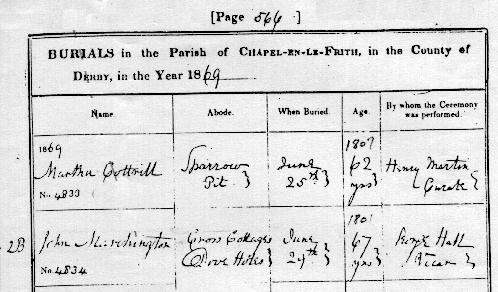 [Page 564]
BURIALS in the Parish of CHAPEL-EN-LE-FRITH, in the County of
DERBY, in the Year 1869
Name. Abode. When Buried. Age. By whom the Ceremony
was performed.
1869 1807
Martha Cottrill Sparrow June 62 Henry Martin
No. 4833 Pit } 25th } yrs } Curate }
1801
2B John Marchington Cross Cottages June 67 George Hall
No. 4834 Dove Holes } 29th } yrs } Vicar }